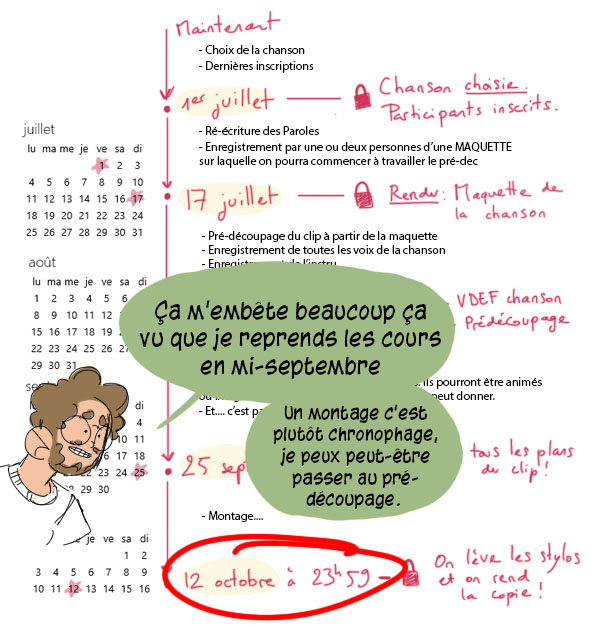 Maintenant
- Choix de la chanson
- Dernières inscriptions
1er juillet
Chanson choisie.
Participants inscrits.
juillet
lu ma me je ve sa di
1 2 3
4 5 6 7 8 9 10
11 12 13 14 15 16 17
18 19 20 21 22 23 24
25 26 27 28 29 30 31
- Ré-écriture des Paroles
- Enregistrement par une ou deux personnes d'une MAQUETTE
sur laquelle on pourra commencer à travailler le pré-dec
17 juillet
Rendu : Maquette de
la chanson
- Pré-découpage du clip à partir de la maquette
- Enregistrement de toutes les voix de la chanson
- Enregistrement de l'instru
août
lu ma me je ve sa di
1 2 3
8 9 10
15 16 17
22 23 24
29 30 31
VDEF chanson
Prédécoupage
Ça m'embête beaucoup ça
vu que je reprends les cours
en mi-septembre
ils pourront être animés
peut donner.
- Et.... c'est
Un montage c'est
plutôt chronophage,
je peux peut-être
passer au pré-
découpage.
4
10 11
17 18
24 25
29 30
25 sep
tous les plans
du clip !
- Montage....
je ve sa di
1 2
3 4 5 6 7 8 9
10 11 12 13 14 15 16
12 octobre à 23h59
On lève les stylos
et on rend
la copie !